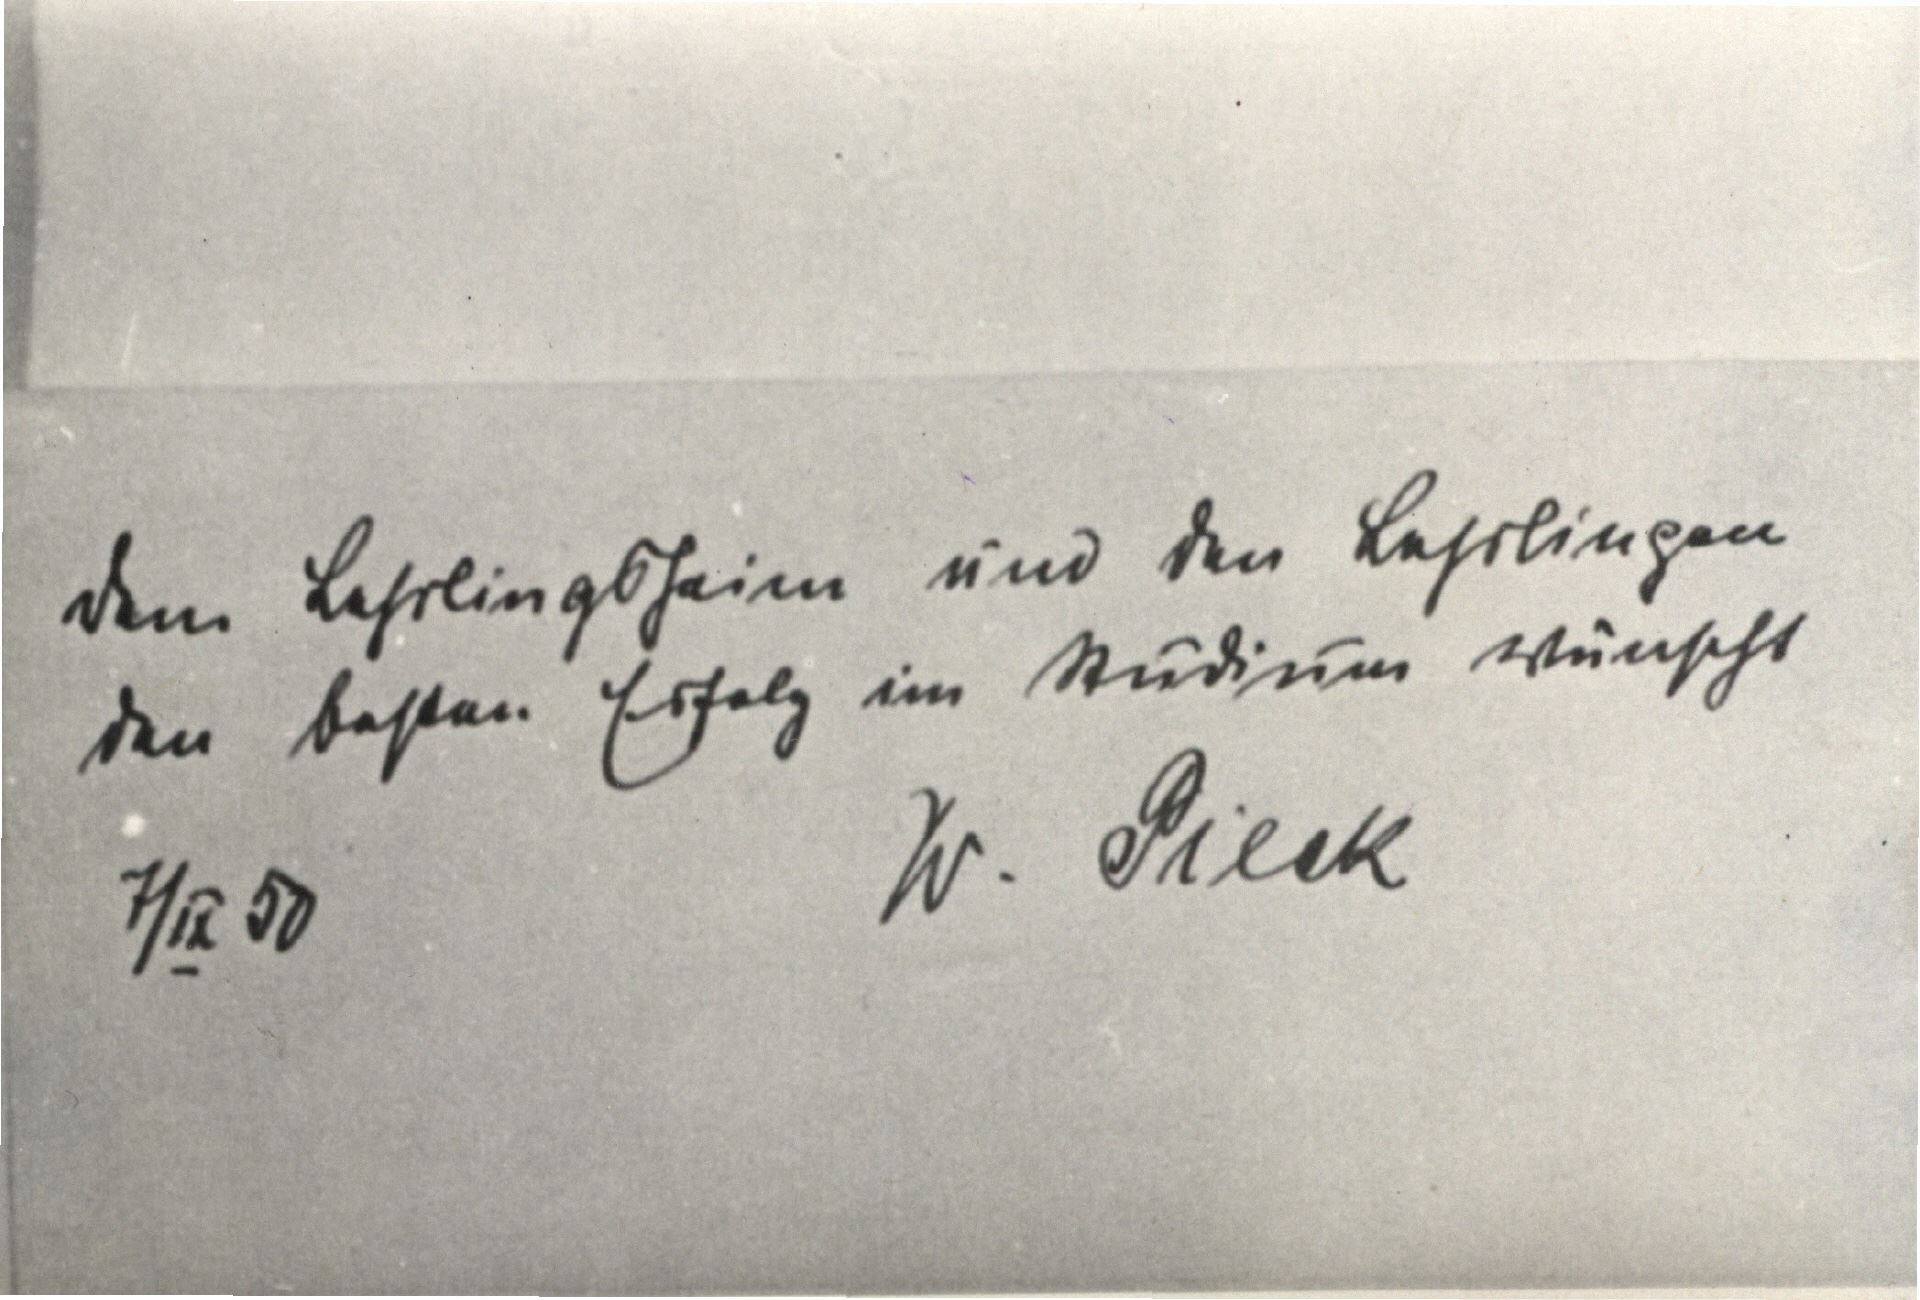 Dem Lehrlingsheim und den Lehrlingen
den besten Erfolg im Studium wünscht
W. Pieck
7/IX 50